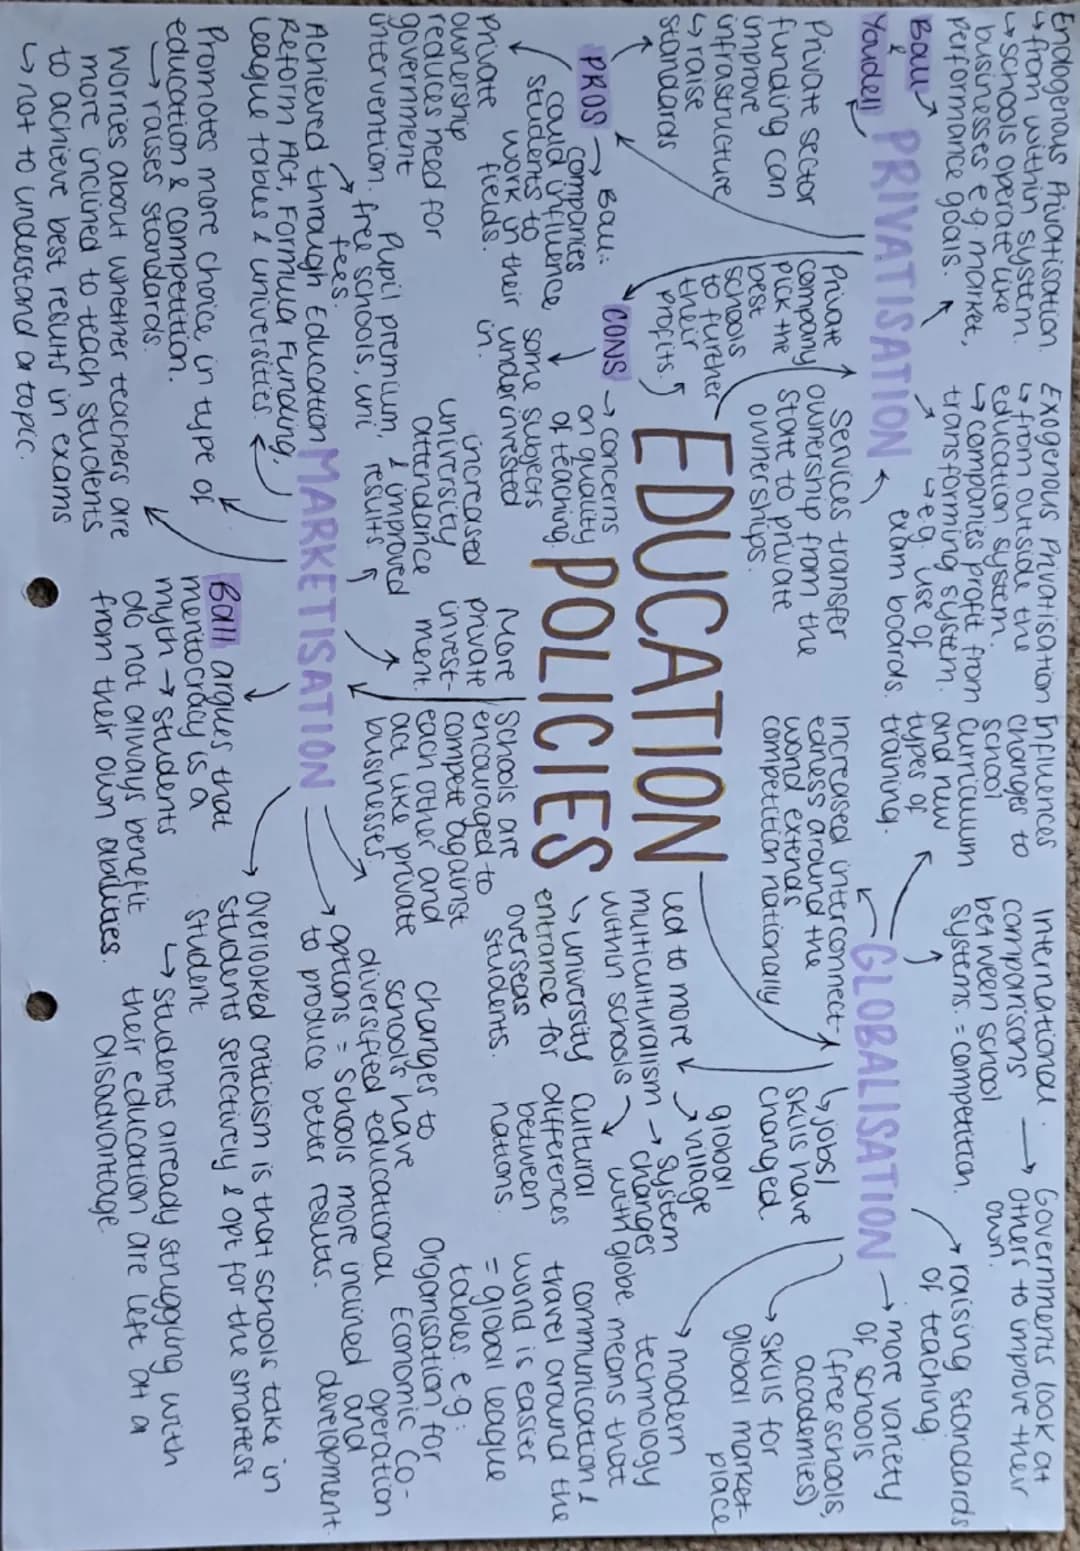 EDUCATION
POLICIES
PRIVATISATION
Ball
&
Youdell
Endogenous Privatisation
↳ from within system.
↳ schools operate like
businesses e.g. market,
performance goals.
Exogenous Privatisation
↳ from outside the
education system
↳ companies profit from
transforming system.
↳ e.g. use of
exam boards.
Private sector
funding can
improve
infrastructure
↳ raise
standards
Private
company
pick the
best
schools
to further
their
profits.
Services transfer
ownership from the
State to private
ownerships.
PROS → Ball:
companies
could influence
students to
work in their
fields.
Private
ownership
reduces need for
government
intervention.
CONS → concerns
on quality
of teaching.
some subjects
underinvested
in.
GLOBALISATION
Influences
changes to
school
curriculum
and new
types of
training.
International
comparisons
between school
systems. = competition.
→ Governments look at
others to improve their
own.
→ raising standards
of teaching.
→ more variety
of schools
(free schools,
academies)
Increased interconnect-
edness around the
world extends
competition nationally
↳ jobs/
skills have
changed.
→ skills for
global market-
place
Led to more
multiculturalism
within schools
→ global
village
→ system
changes
with globe
→ modern
technology
means that
communication &
travel around the
world is easier
= global league
tables. e.g.
Organisation for
Economic Co-
operation
and
development.
↳ university
entrance for
overseas
students.
cultural
differences
between
nations.
MARKETISATION
Achieved through Education
Reform Act, Formula Funding,
league tables & universities.
Pupil premium,
free schools, uni
fees.
increased
university
attendance
& improved
results.
More
private
invest-
ment.
Schools are
encouraged to
compete against
each other and
act like private
businesses.
changes to
schools have
diversified educational
options = Schools more inclined
to produce better results.
Promotes more choice in type of
education & competition.
→ raises standards.
Worries about whether teachers are
more inclined to teach students
to achieve best results in exams
↳ not to understand a topic.
Ball argues that
meritocracy is a
myth → students
do not always benefit
from their own abilities.
→ overlooked criticism is that schools take in
students selectively & opt for the smartest
student
↳ students already struggling with
their education are left at a
disadvantage.